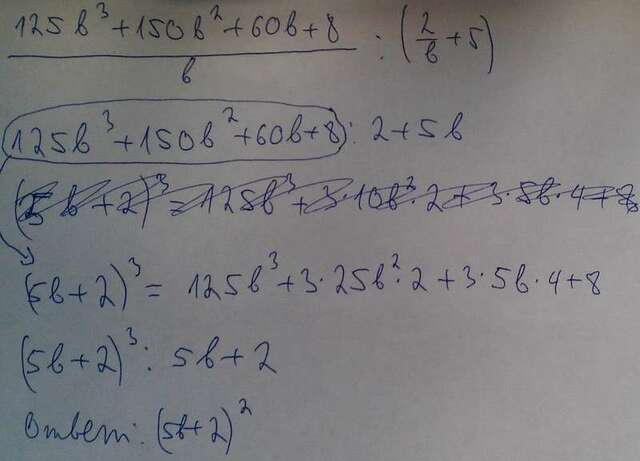 (125b³+150b²+60b+8)/b : (2/b+5)
125b³+150b²+60b+8 : 2+5b
(5b+2)³=125b³+3·10b²·2+3·5b·4+8
(5b+2)³= 125b³+3·25b²·2+3·5b·4+8
(5b+2)³: 5b+2
Ответ: (5b+2)²